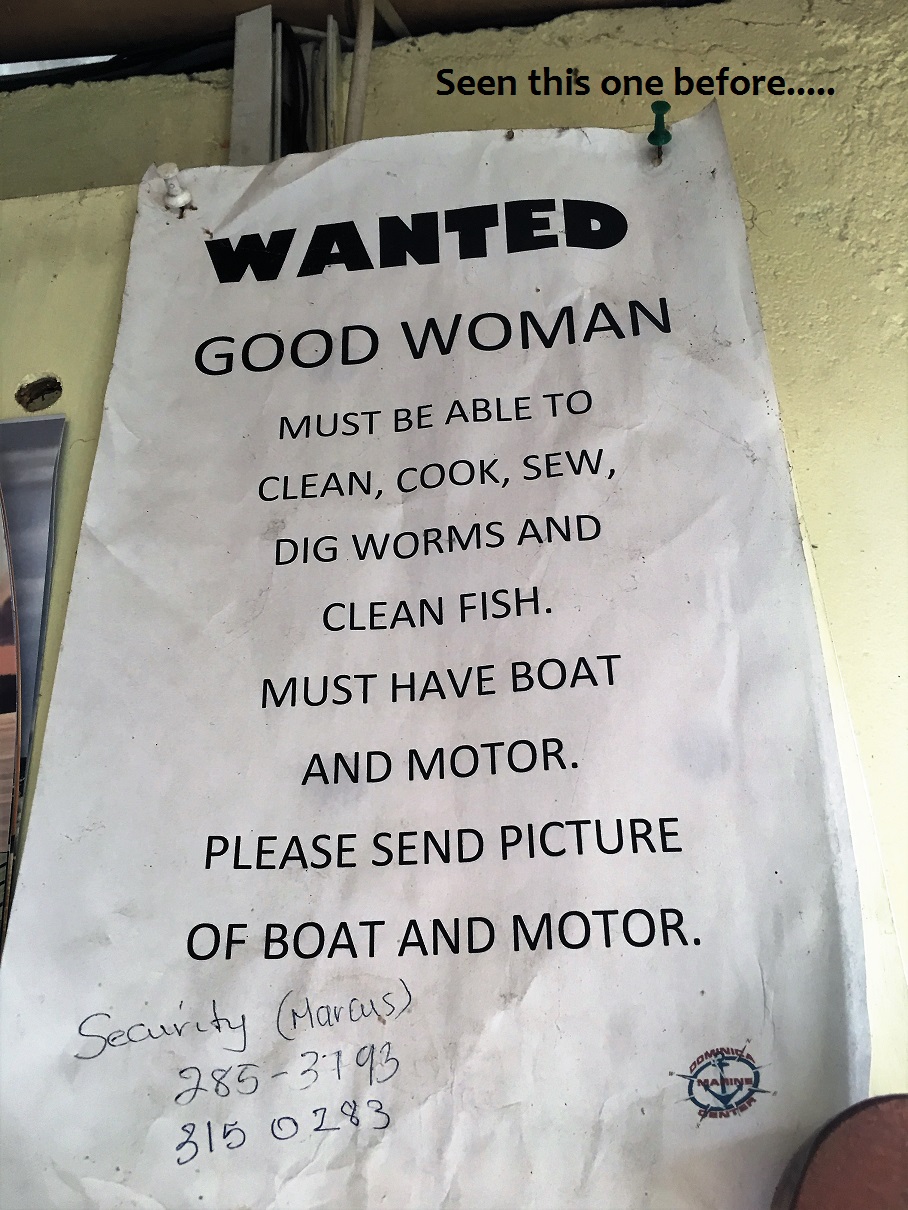 Seen this one before.....
WANTED
GOOD WOMAN
MUST BE ABLE TO
CLEAN, COOK, SEW,
DIG WORMS AND
CLEAN FISH.
MUST HAVE BOAT
AND MOTOR.
PLEASE SEND PICTURE
OF BOAT AND MOTOR.
Security (Marcus)
285-3793
315 0283
DOMINICA
MARINE
CENTER